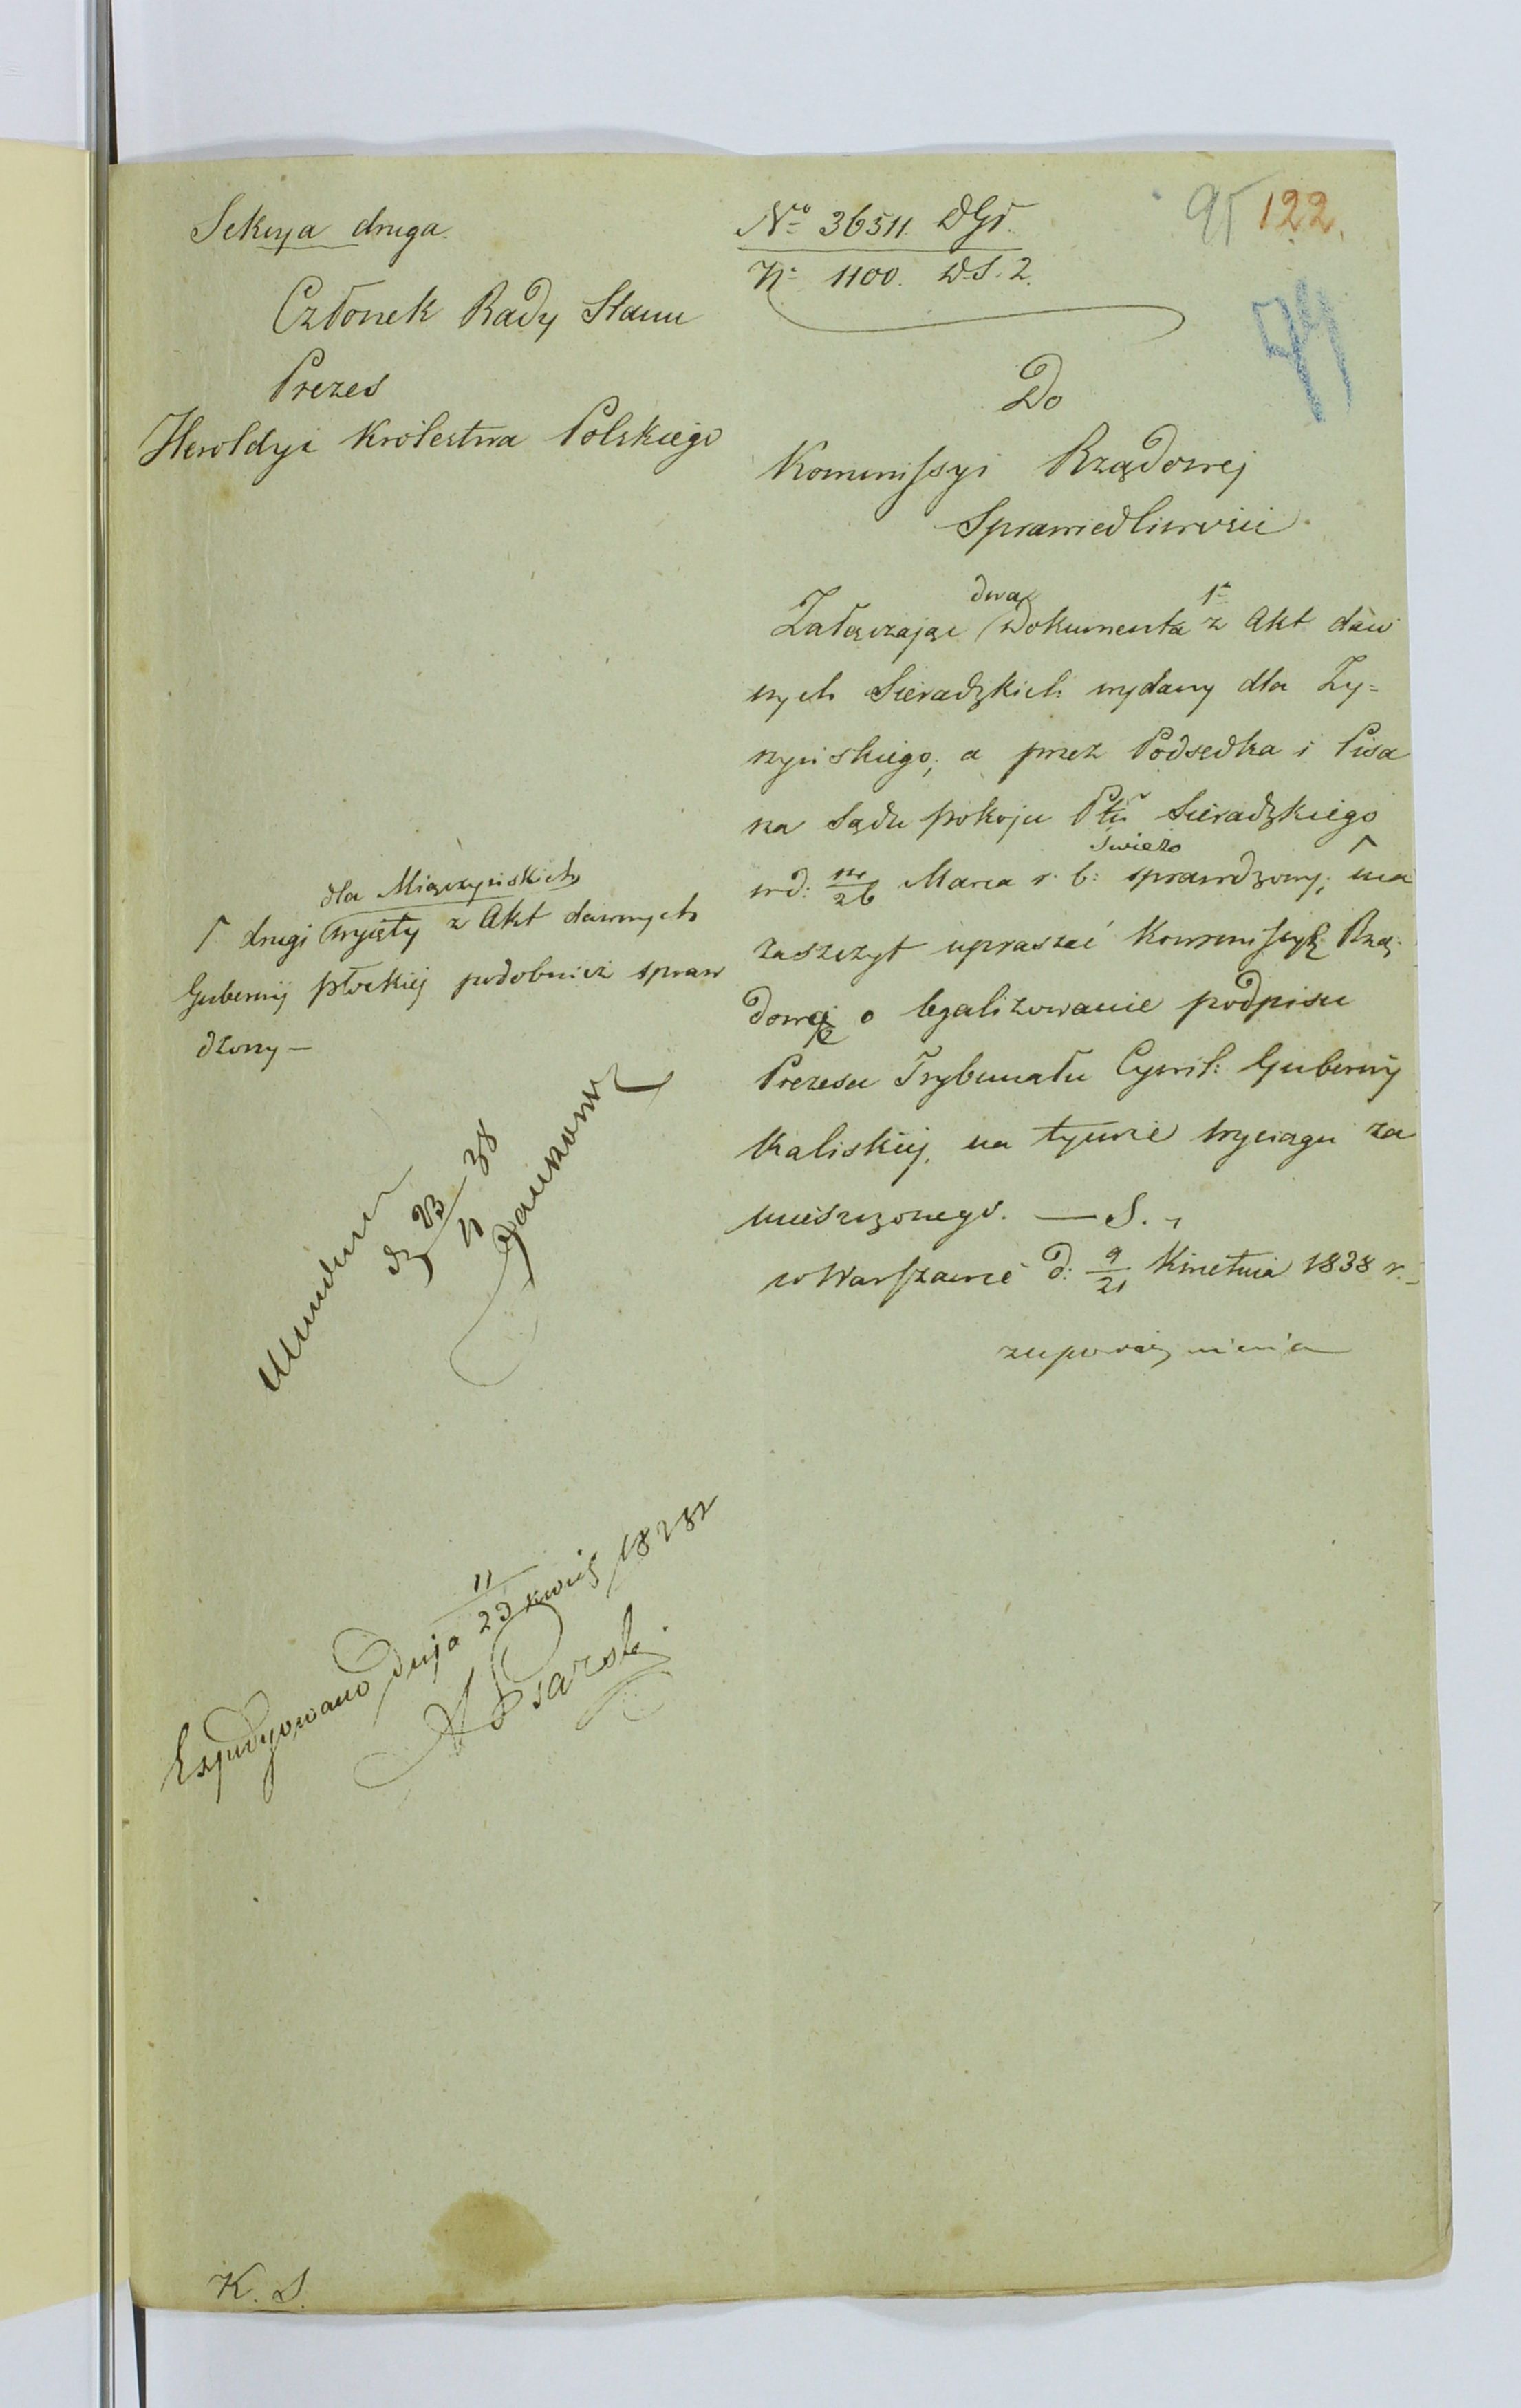 Sekcya druga
Członek Rady Stanu
Prezes
Heroldyi Królestwa Polskiego
No 36511 DGł.
N 1100. W.S. 2.
95 122.
94
Do
Kommissyi Rządowej
Sprawiedliwości
dwa 1
Załączając Dokumenta z Akt daw
nych Sieradzkich wydany dla Zy=
czyńskiego, a przez Podsędka i Pisa
rza Sądu pokoju Ptu Sieradzkiego
świeżo
w d: 14/26 Marca r. b: sprawdzony; ma
zaszczyt upraszać Kommissyę Rzą
dową o legalizowanie podpisu
Prezesa Trybunału Cywil: Gubernij
Kaliskiej, na tymże wyciągu za
mieszczonego. — S.
w Warszawie d: 9/21 Kwietnia 1838 r.
z upoważnienia
dla Miączyńskich
drugi wyjęty z Akt dawnych
Gubernij płockiej podobnież spraw
dzony —
Mundum
d 23/4 38
Expedyowano dnia 11/23 kwie 1838 r
A Psarski
K. S.